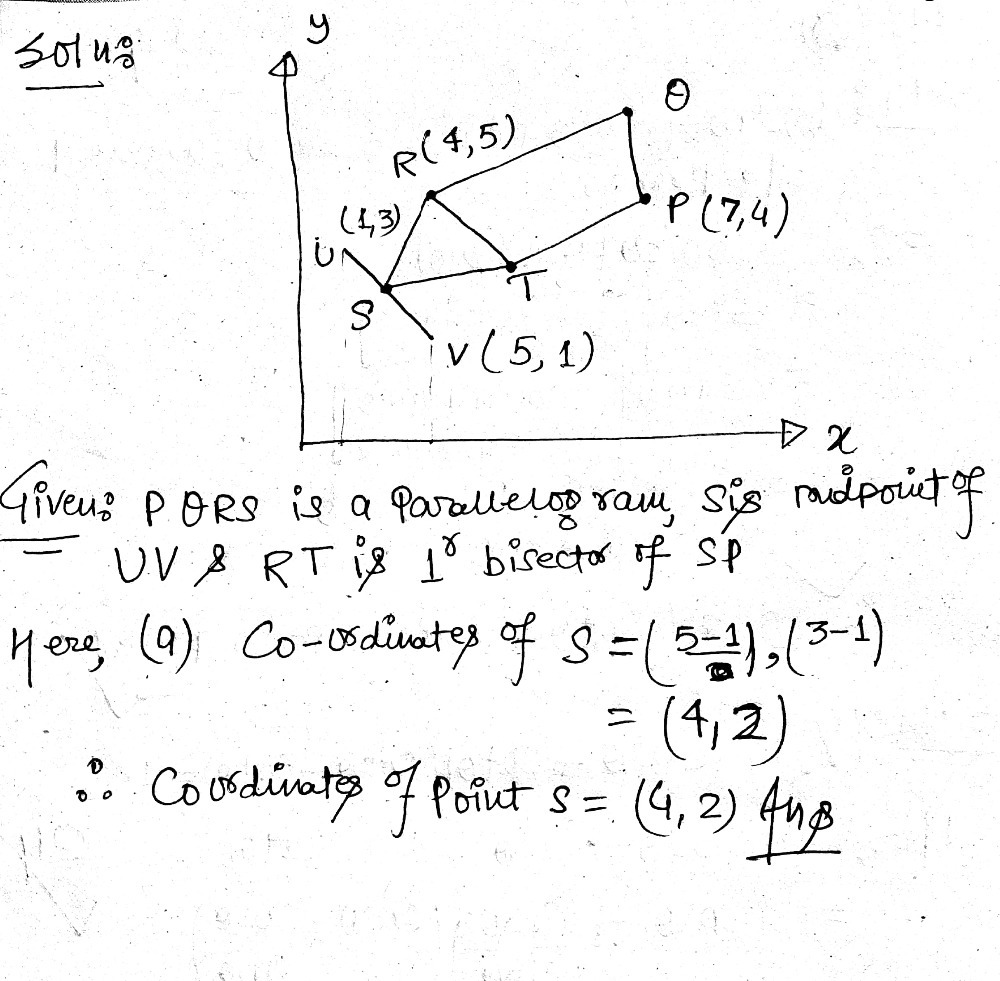 Soln:
y
θ
R(4,5)
(1,3)
P(7,4)
U
T
S
V(5,1)
x
Given: PθRS is a Parallelogram, S is midpoint of
UV & RT is 1r bisector of SP
Here, (a) Co-ordinates of S = (5-1), (3-1)
= (4,2)
∴ Coordinates of Point S = (4,2) Ans